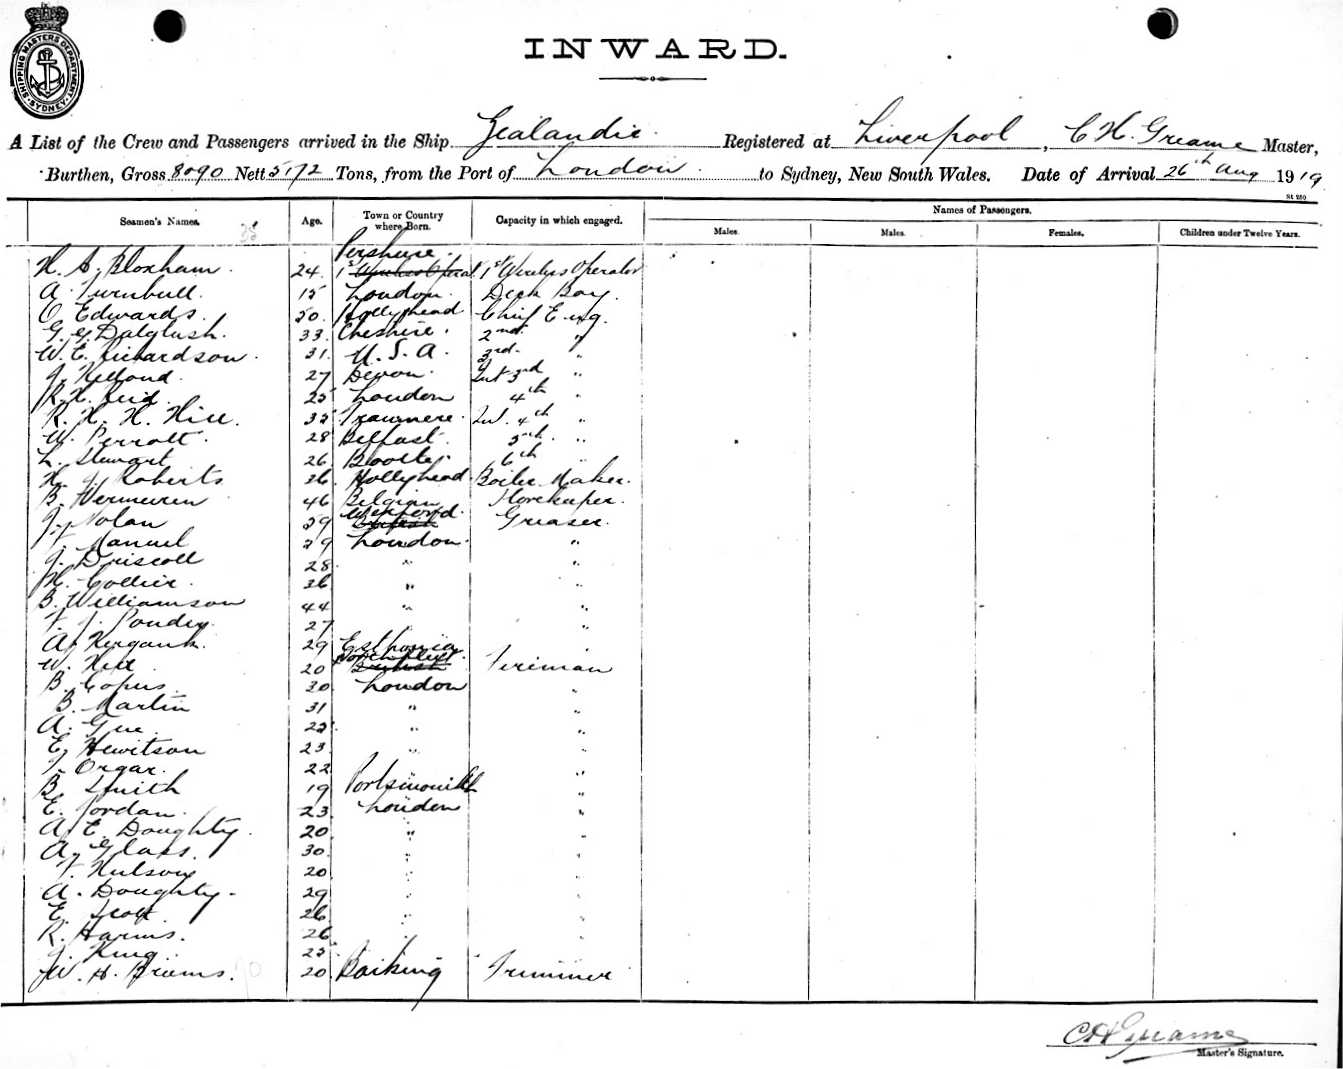 SHIPPING MASTERS DEPARTMENT SYDNEY
INWARD.
A List of the Crew and Passengers arrived in the Ship Zealandic. Registered at Liverpool, C H. Greame Master,
Burthen, Gross 8090 Nett 5172 Tons, from the Port of London. to Sydney, New South Wales. Date of Arrival 26th Aug 1919
St 250
Seamen's Names. Age. Town or Country where Born. Capacity in which engaged. Names of Passengers.
Males. Males. Females. Children under Twelve Years.
H. A. Bloxham. 24. Pershire. 1st Wireless Operator 1st Wireless Operator
A. Turnbull. 15 London. Deck Boy.
O Edwards. 50. Hollyhead Chief Eng.
G. G. Dalglush. 33. Cheshire. 2nd "
W. E. Richardson. 31. U.S.A. 3rd. "
J. Kelland. 27 Devon. Int 3rd "
R. H. Reid. 25 London 4th "
R. H. H. Hill. 32 Tranmere. Int. 4th "
W. Perrott. 28 Belfast. 5th. "
L. Stewart 26. Bootle. 6th "
H. J. Roberts 36. Hollyhead. Boiler Maker.
B. Vermeuren 46 Belgian Storekeeper.
J. Nolan 29 Wexford. British Greaser.
J. Manuel 29 London. "
J. Driscoll 28. " "
H. Collier. 36 " "
B. Williamson 44 " "
F. J. Pondey. 27 " "
A. Kergank. 29 Esthonia "
W. Hill 20 Northfleet. British Fireman
B. Copus. 30 London "
B. Martin 31 " "
A. Gue. 25 " "
E. Hewitson 23 " "
T. Orgar. 22 " "
B. Smith 19 Portsmouth "
E. Jordan. 23 London "
A. E. Doughty. 20 " "
A. Glass. 30. " "
20 " "
A. Doughty. 29 " "
E. Scott. 26 " "
R. Harms. 26 " "
J. King. 25 " "
W. H. Briems. 20 Barking Trimmer
C H Greame
Master's Signature.